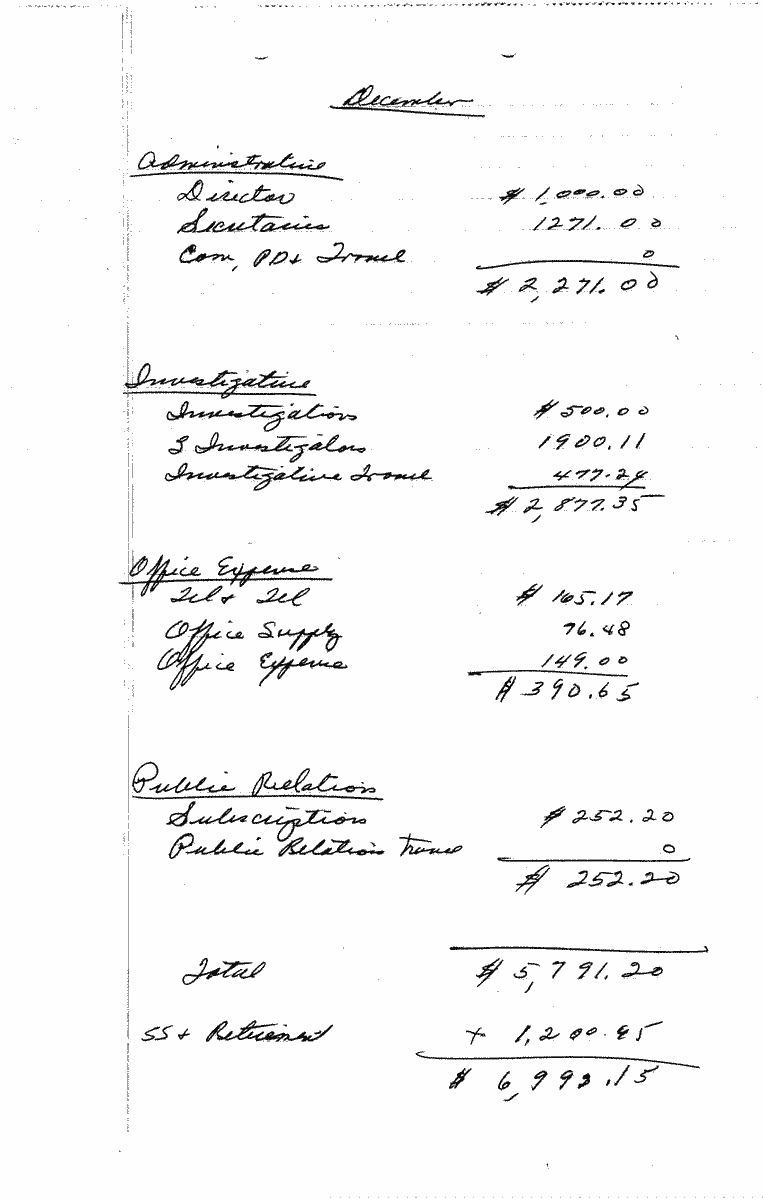 December
Administrative
Director $ 1,000.00
Secretaries 1271.00
Com, PD+ Travel 0
$ 2,271.00
Investigative
Investigations $ 500.00
3 Investigators 1900.11
Investigative Travel 477.24
$ 2,877.35
Office Expense
Tel + Tel $ 165.17
Office Supply 76.48
Office Expense 149.00
$ 390.65
Public Relations
Subscriptions $ 252.20
Public Relations Travel 0
$ 252.20
Total $ 5,791.20
SS + Retirement + 1,200.95
$ 6,992.15